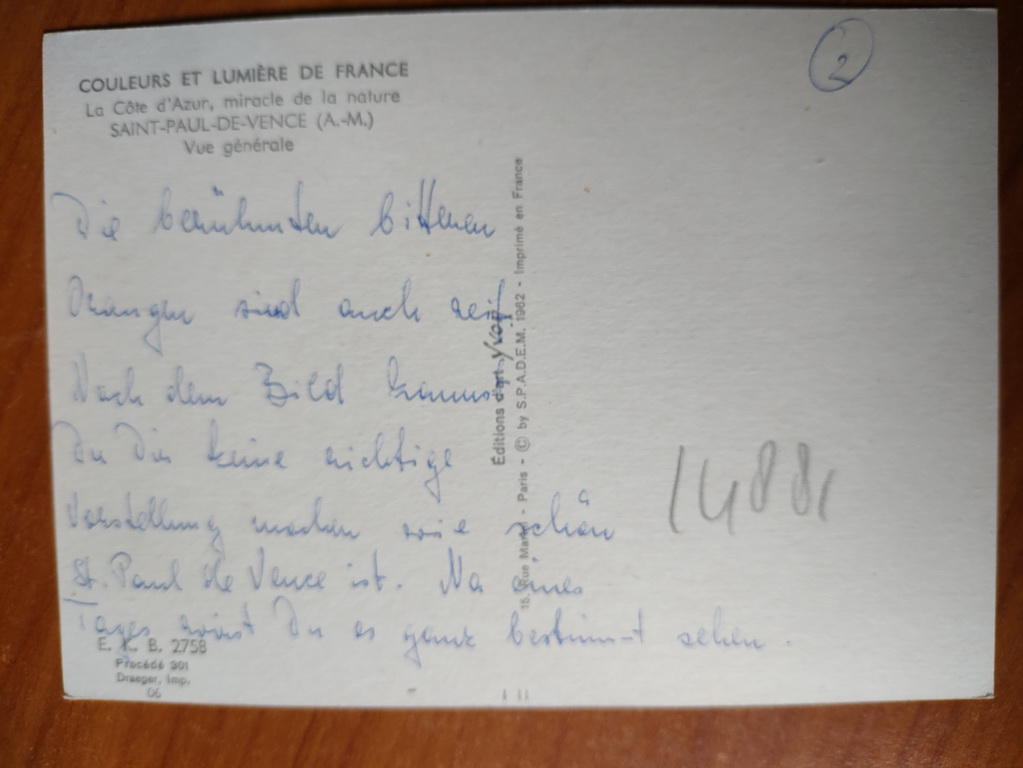 2
COULEURS ET LUMIÈRE DE FRANCE
La Côte d'Azur, miracle de la nature
SAINT-PAUL-DE-VENCE (A.-M.)
Vue générale
Die berühmten bitteren
Orangen sind auch reif
Nach dem Bild kannst
Du Dir keine richtige
Vorstellung machen wie schön
St. Paul de Vence ist. Na eines
Tages wirst Du es ganz bestimmt sehen.
Éditions d'art Yvon
15, Rue Martel - Paris - © by S.P.A.D.E.M. 1962 - Imprimé en France
E. K. B. 2758
Procédé 301
Draeger, Imp.
06